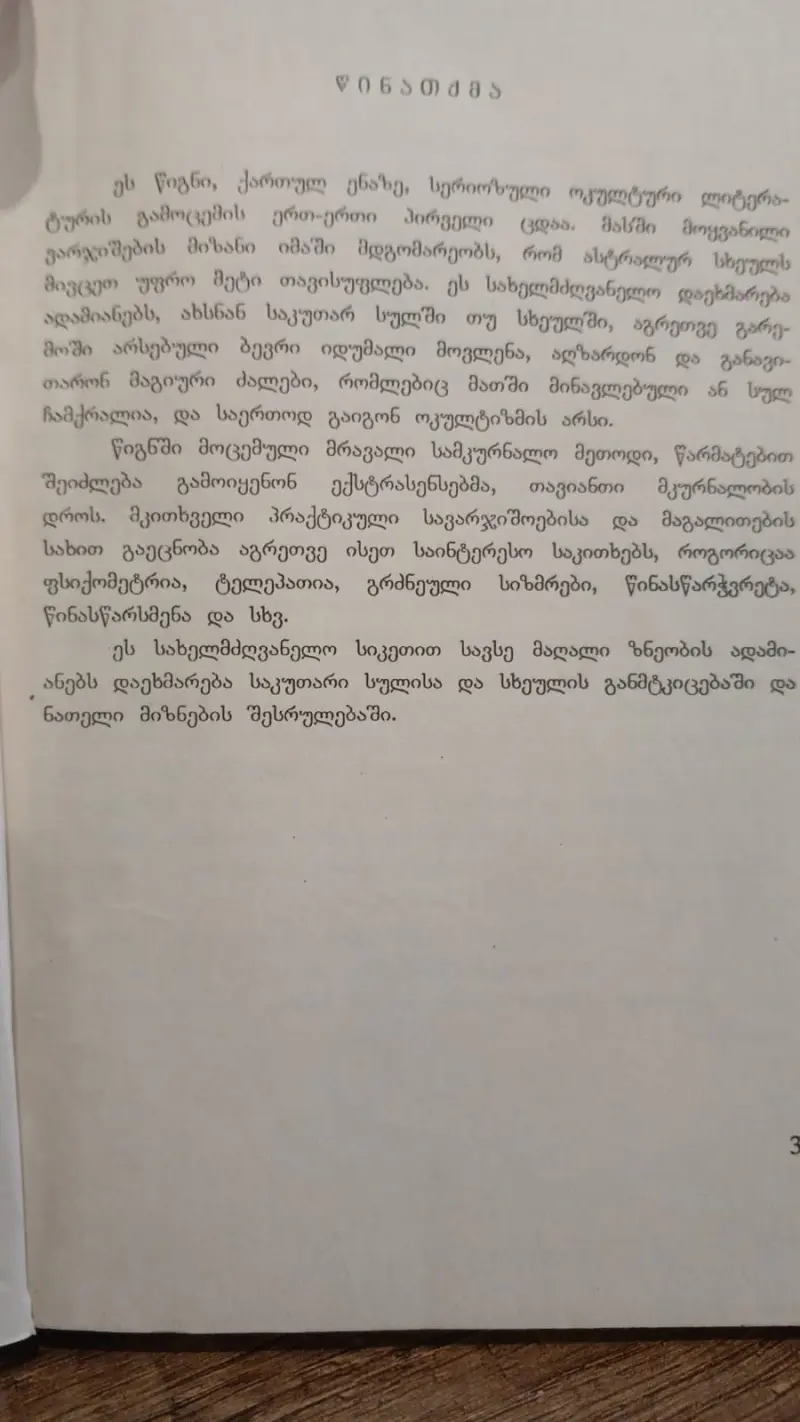 წინათქმა
ეს წიგნი, ქართულ ენაზე, სერიოზული ოკულტური ლიტერა-
ტურის გამოცემის ერთ-ერთი პირველი ცდაა. მასში მოყვანილი
ვარჯიშების მიზანი იმაში მდგომარეობს, რომ ასტრალურ სხეულს
მივცეთ უფრო მეტი თავისუფლება. ეს სახელმძღვანელო დაეხმარება
ადამიანებს, ახსნან საკუთარ სულში თუ სხეულში, აგრეთვე გარე-
მოში არსებული ბევრი იდუმალი მოვლენა, აღზარდონ და განავი-
თარონ მაგიური ძალები, რომლებიც მათში მინავლებული ან სულ
ჩამქრალია, და საერთოდ გაიგონ ოკულტიზმის არსი.
წიგნში მოცემული მრავალი სამკურნალო მეთოდი, წარმატებით
შეიძლება გამოიყენონ ექსტრასენსებმა, თავიანთი მკურნალობის
დროს. მკითხველი პრაქტიკული სავარჯიშოებისა და მაგალითების
სახით გაეცნობა აგრეთვე ისეთ საინტერესო საკითხებს, როგორიცაა
ფსიქომეტრია, ტელეპათია, გრძნეული სიზმრები, წინასწარჭვრეტა,
წინასწარსმენა და სხვ.
ეს სახელმძღვანელო სიკეთით სავსე მაღალი ზნეობის ადამი-
ანებს დაეხმარება საკუთარი სულისა და სხეულის განმტკიცებაში და
ნათელი მიზნების შესრულებაში.
3